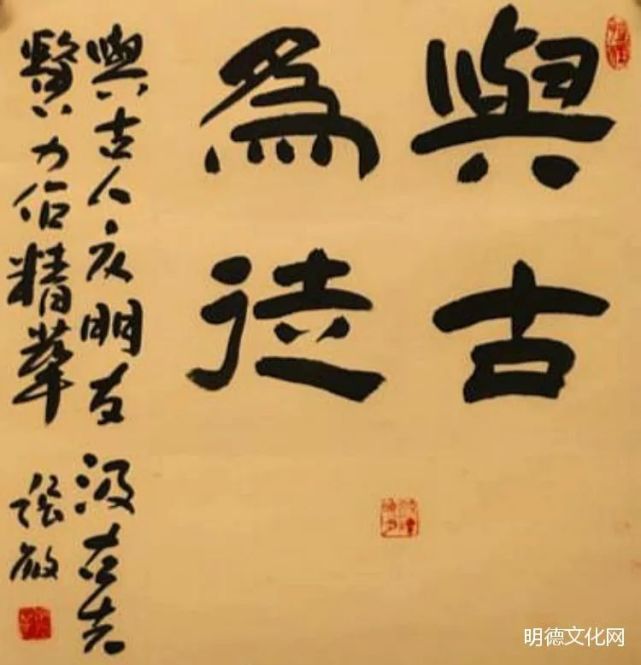 與古
為徒
與古人交朋友 汲古先
賢力作精華
明德文化网